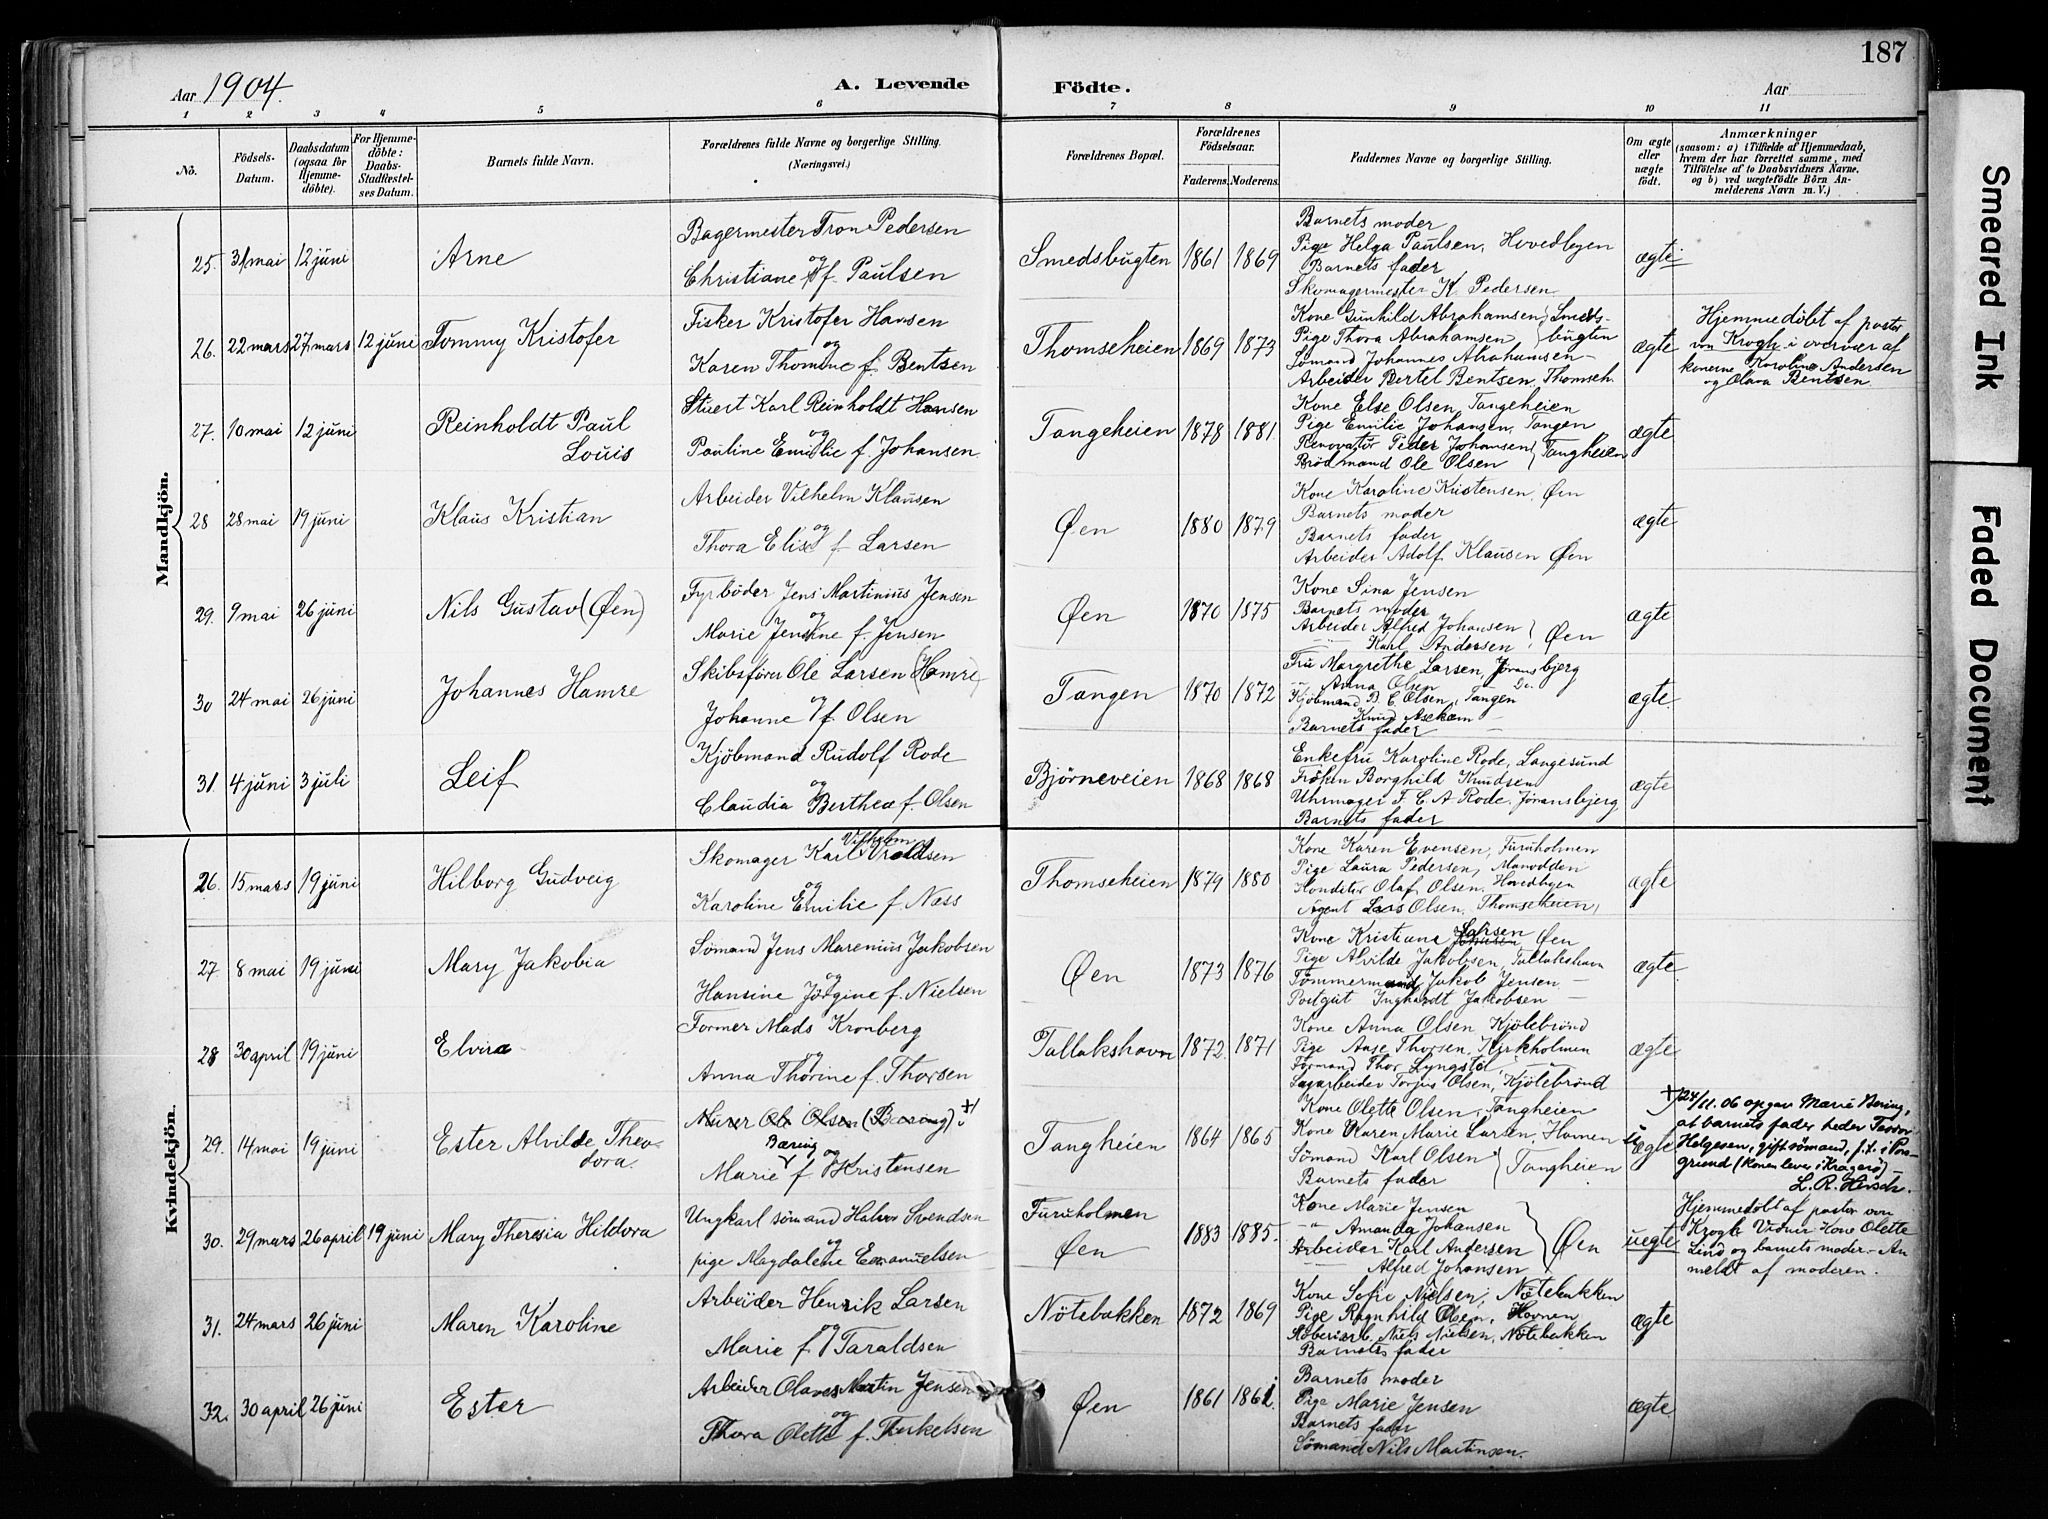 187
Aar 1904.
A. Levende Födte.
Aar
1 2 3 4 5 6 7 8 9 10 11
No.
Födsels-Datum.
Daabsdatum (ogsaa for Hjemme-döbte).
For Hjemme-döbte: Daabs-Stadfæstel-ses Datum.
Barnets fulde Navn.
Forældrenes fulde Navne og borgerlige Stilling.
(Næringsvei.)
Forældrenes Bopæl.
Forældrenes Födselsaar.
Faderens. Moderens.
Faddernes Navne og borgerlige Stilling.
Om ægte eller uægte födt.
Anmærkninger
(saasom: a) i Tilfælde af Hjemmedaab,
hvem der har forrettet samme, med
Tilföielse af to Daabsvidners Navne.
og b) ved uægtefödte Börn An-
melderens Navn m. V.)
Mandkjön.
25. 31 mai 12 juni Arne
Bagermester Tron Pedersen
og
Christiane f. Paulsen
Smedsbugten 1861 1869
Barnets moder
Pige Helga Paulsen, Hovedbyen
Barnets fader
Skomagermester K. Pedersen
ægte
26. 22 mars 27 mars 12 juni Tommy Kristofer
Fisker Kristofer Hansen
og
Karen Thomine f. Bentsen
Thomseheien 1869 1873
Kone Gunhild Abrahamsen Smeds-
Pige Thora Abrahamsen bugten
Sömand Johannes Abrahamsen —
Arbeider Bertel Bentsen, Thomseh.
ægte
Hjemmedöbt af pastor
von Krogh i overvær af
konerne Karoline Andersen
og Olava Bentsen
27. 10 mai 12 juni Reinholdt Paul
Louis
Stuert Karl Reinholdt Hansen
og
Pauline Emilie f. Johansen
Tangeheien 1878 1881.
Kone Else Olsen, Tangeheien
Pige Emilie Johansen, Tangen
Renovatör Peder Johansen
Brödmand Ole Olsen Tangheien
ægte
28 28 mai 19 juni Klaus Kristian
Arbeider Vilhelm Klausen
og
Thora Elise f. Larsen
Øen 1880 1879
Kone Karoline Kristensen, Øen
Barnets moder
Barnets fader
Arbeider Adolf Klausen Øen
ægte
29. 9 mai 26 juni Nils Gustav (Øen)
Fyrböder Jens Martinius Jensen
og
Marie Jensine f. Jensen
Øen 1870 1875
Kone Sina Jensen
Barnets moder
Arbeider Alfred Johansen
Karl Andersen Øen
ægte
30 24 mai 26 juni Johannes Hamre
Skibsförer Ole Larsen (Hamre)
og
Johanne f. Olsen
Tangen 1870 1872
Fru Margrethe Larsen, Jöransbjerg
Anna Olsen Do.
Kjöbmand B. C. Olsen, Tangen
Knud —
Barnets fader
ægte.
31. 4 juni 3 juli Leif
Kjöbmand Rudolf Rode
og
Claudia Berthea f. Olsen
Björneveien 1868 1868
Enkefru Karoline Rode, Langesund
Fröken Borghild Knudsen
Uhrmager F. C. A. Rode, Jöransbjerg
Barnets fader
ægte
Kvindekjön.
26. 15 mars 19 juni Hilborg Gudveig
Vilhelm
Skomager Karl
og
Karoline Emilie f. Næss
Thomseheien 1879 1880
Kone Karen Evensen, Furuholmen
Pige Laura Pedersen,
Konditor Olaf Olsen, Hovedbyen
Agent Lars Olsen, Thomseheien
ægte
27 8 mai 19 juni Mary Jakobia
Sömand Jens Marenius Jakobsen
og
Hansine Jörgine f. Nielsen
Øen 1873 1876
Kone Kristiane Larsen Øen
Pige Alvilde Jakobsen, Tallakshavn
Tömmermand Jakob Jensen —
Postgut Inghardt Jakobsen —
ægte
28 30 april 19 juni Elvira
Former Mads Kronberg
og
Anna Thorine f. Thorsen
Tallakshavn 1872. 1871
Kone Anna Olsen, Kjölebrönd
Pige Aase Thorsen, Kirkholmen
Formand Thor Lyngstöl
Sagarbeider Torjus Olsen, Kjölebrönd
ægte
29. 14 mai 19 juni Ester Alvilde Theo-
dora.
Murer Ole Olsen (Bæring) +)
Bæring og
Marie f. Kristensen
Tangheien 1864 1865
Kone Olette Olsen, Tangheien
Kone Karen Marie Larsen, Havnen
Sömand Karl Olsen
Barnets fader Tangheien
uægte
+) 24/11.06 opgav Marie Bering,
at barnets fader heder Teodor
Helgesen, gift sömand, f. t. i Pors-
grund (konen lever i Kragerö) —
L. R. Hirsch.
30. 29 mars 26 april 19 juni Mary Theresia Hildora
Ungkarl sömand Halvor Svendsen
og
pige Magdalene Emanuelsen
Furuholmen
Øen
1883 1885.
Kone Marie Jensen
Amanda Johansen
Arbeider Karl Andersen
Alfred Johansen Øen
uegte
Hjemmedöbt af pastor von
Krogh. Vidner Kone Olette
Lind og barnets moder. — An-
meldt af moderen.
31. 24 mars 26 juni Maren Karoline
Arbeider Henrik Larsen
og
Marie f. Taraldsen
Nötebakken 1872 1869
Kone Sofie Nielsen, Nötebakken
Pige Ragnhild Olsen, Havnen
Niels Nielsen, Nötebakken
Barnets fader
ægte
32. 30 april 26 juni Ester
Arbeider Olaves Martin Jensen
og
Thora Olette f. Terkelsen
Øen 1861 1861.
Barnets moder
Pige Marie Jensen
Barnets fader
Sömand Nils Martinsen.
ægte
Smeared Ink
Faded Document